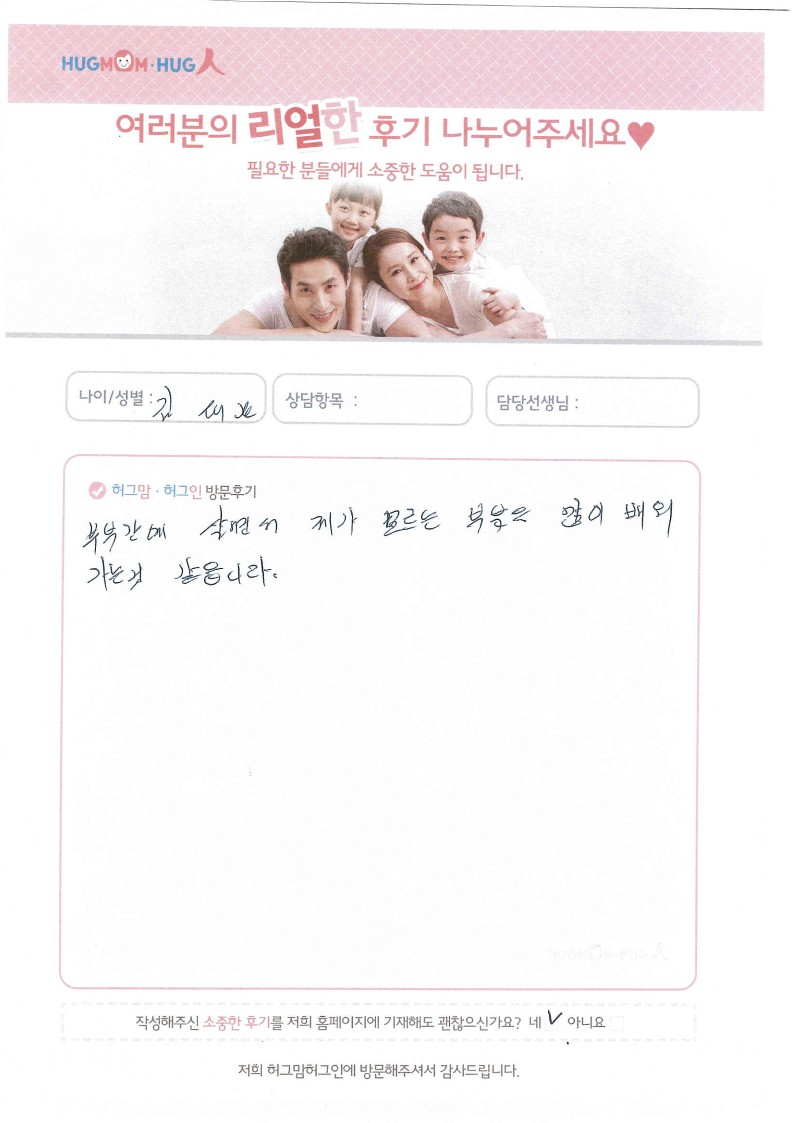 HUGMOM·HUG人
여러분의 리얼한 후기 나누어주세요♥
필요한 분들에게 소중한 도움이 됩니다.
나이/성별 : 김
상담항목 :
담당선생님 :
허그맘·허그인 방문후기
부부간에 살면서 제가 모르는 부분은 많이 배워
가는것 같읍니다.
작성해주신 소중한 후기를 저희 홈페이지에 기재해도 괜찮으신가요? 네 V 아니요
저희 허그맘허그인에 방문해주셔서 감사드립니다.